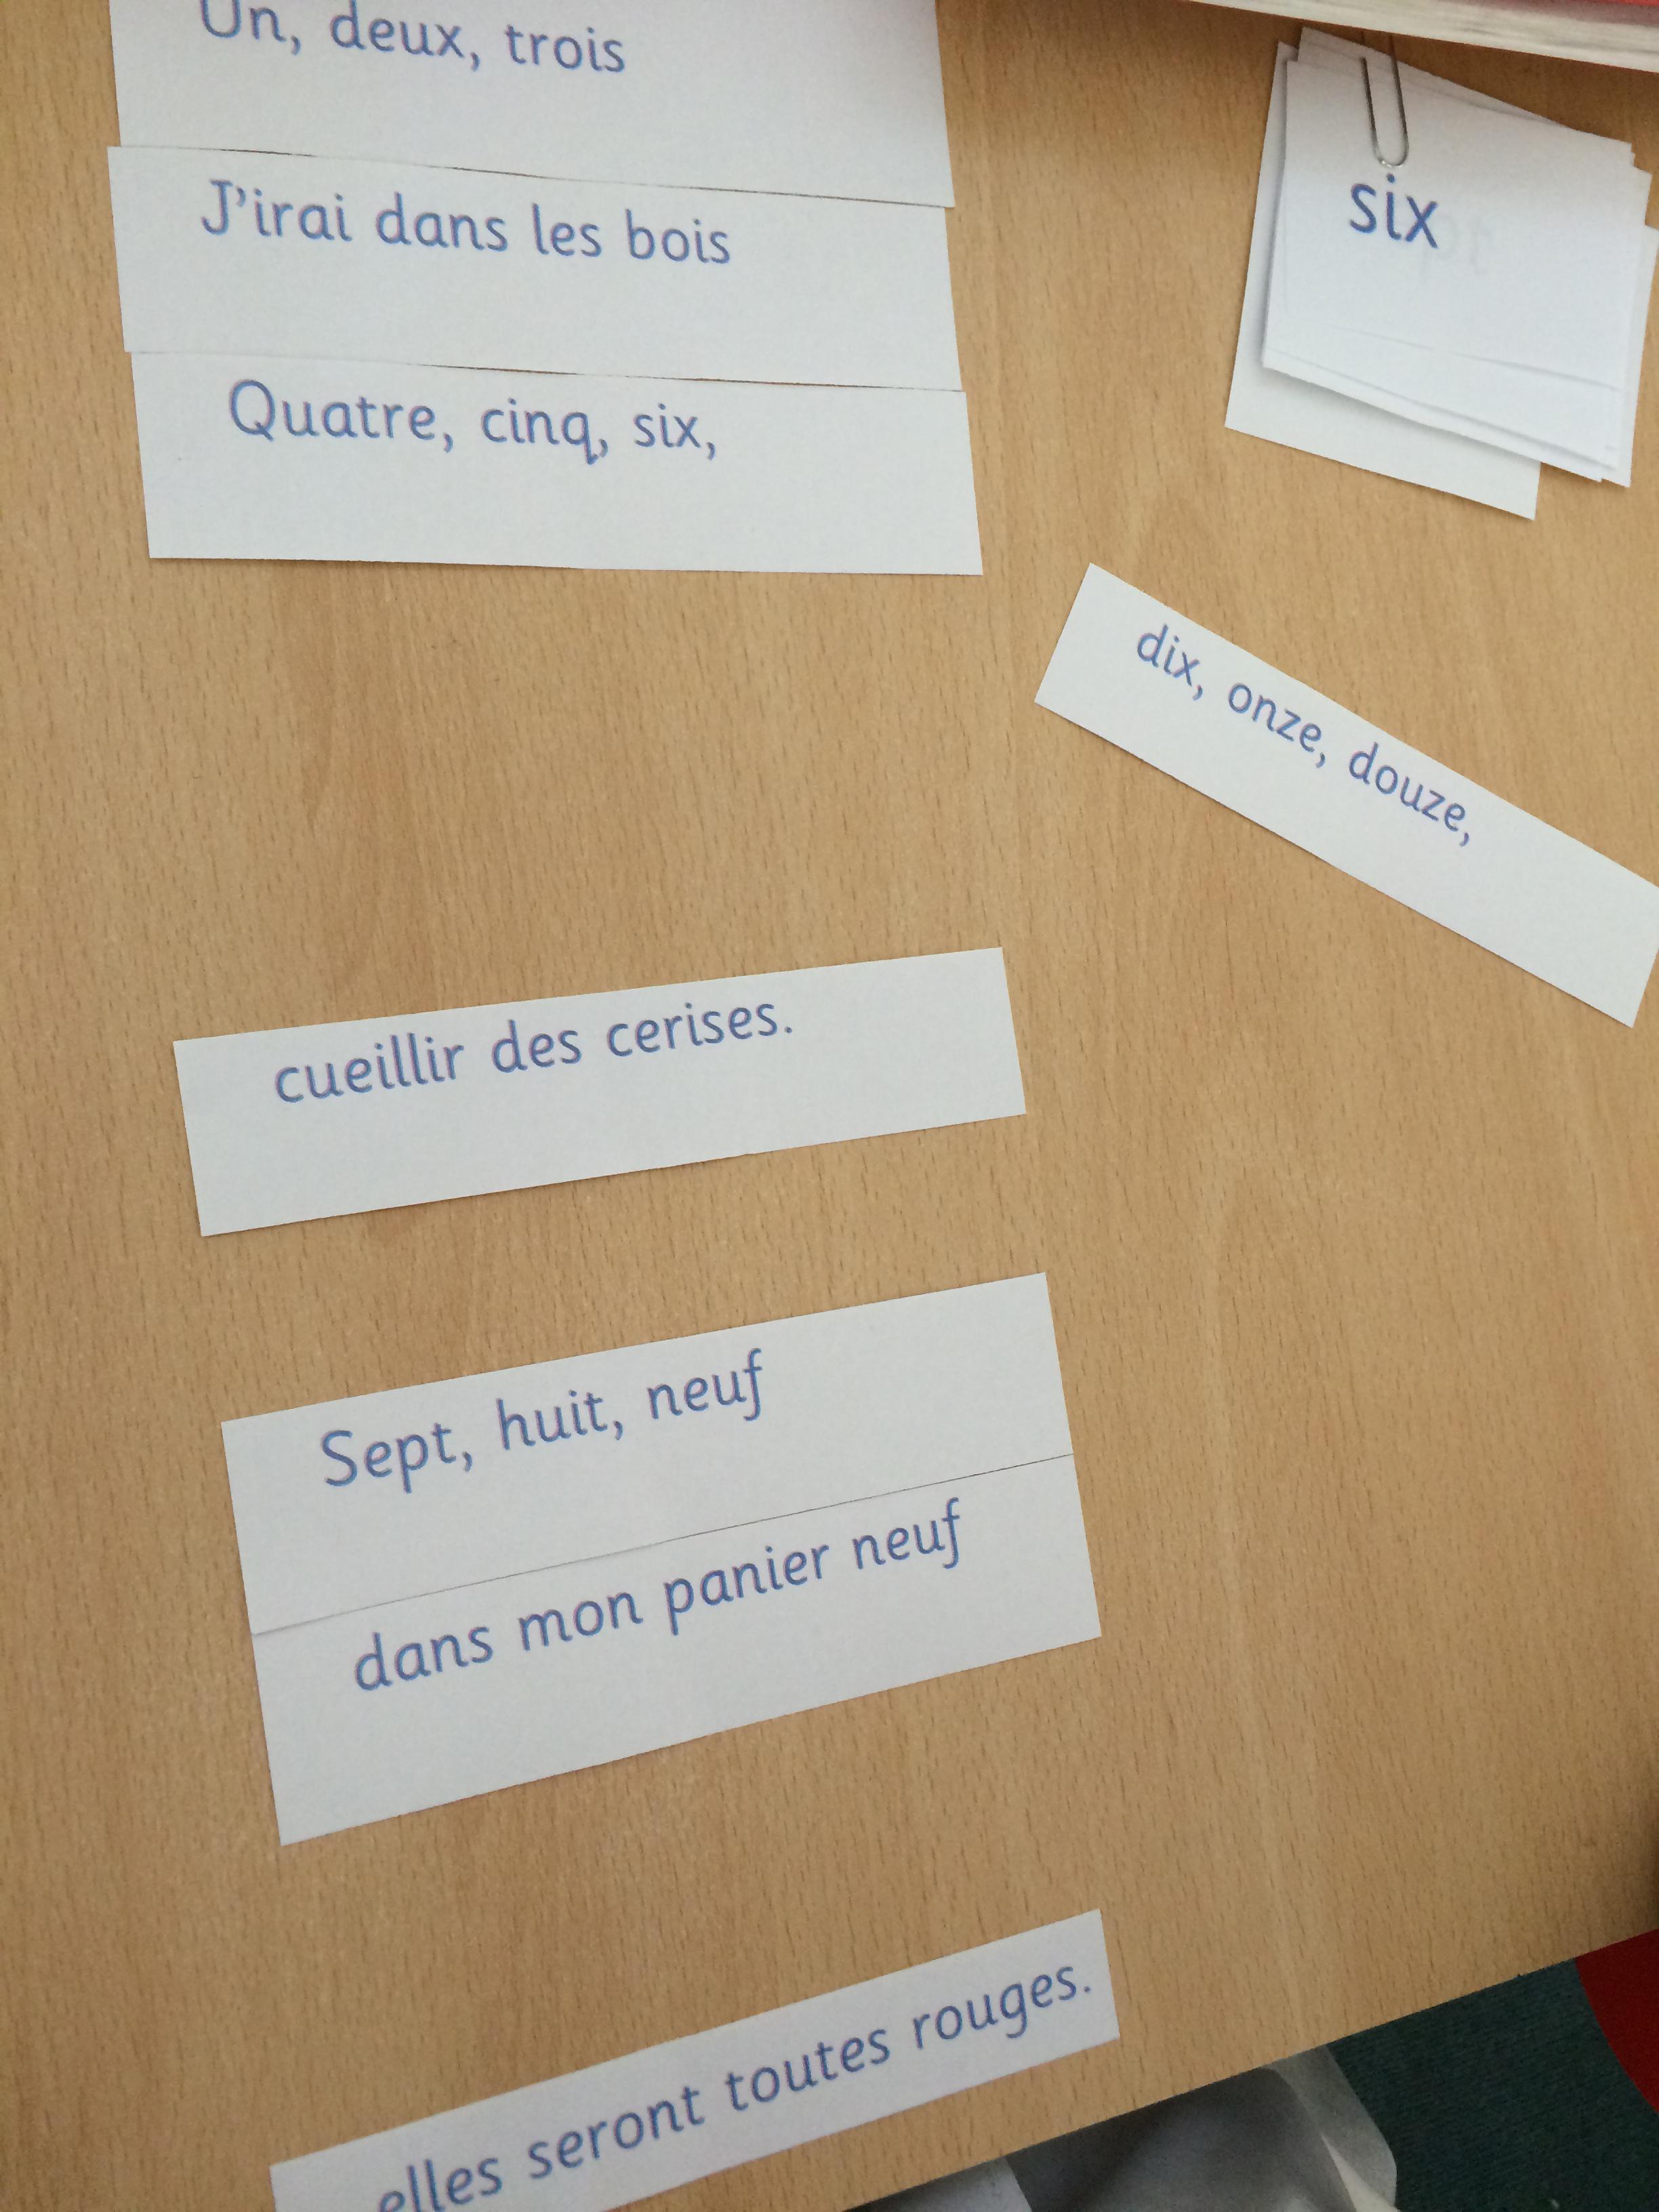 Un, deux, trois
J'irai dans les bois
Quatre, cinq, six,
six
dix, onze, douze,
cueillir des cerises.
Sept, huit, neuf
dans mon panier neuf
elles seront toutes rouges.